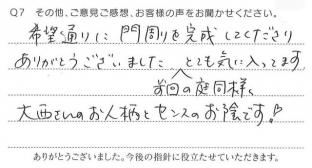 Q7 その他、ご意見ご感想、お客様の声をお聞かせください。
希望通りに 門周りを完成してくださり
ありがとうございました とても気に入ってます
前回の庭同様に
大西さんのお人柄とセンスのお陰です♪
ありがとうございました。今後の指針に役立たせていただきます。